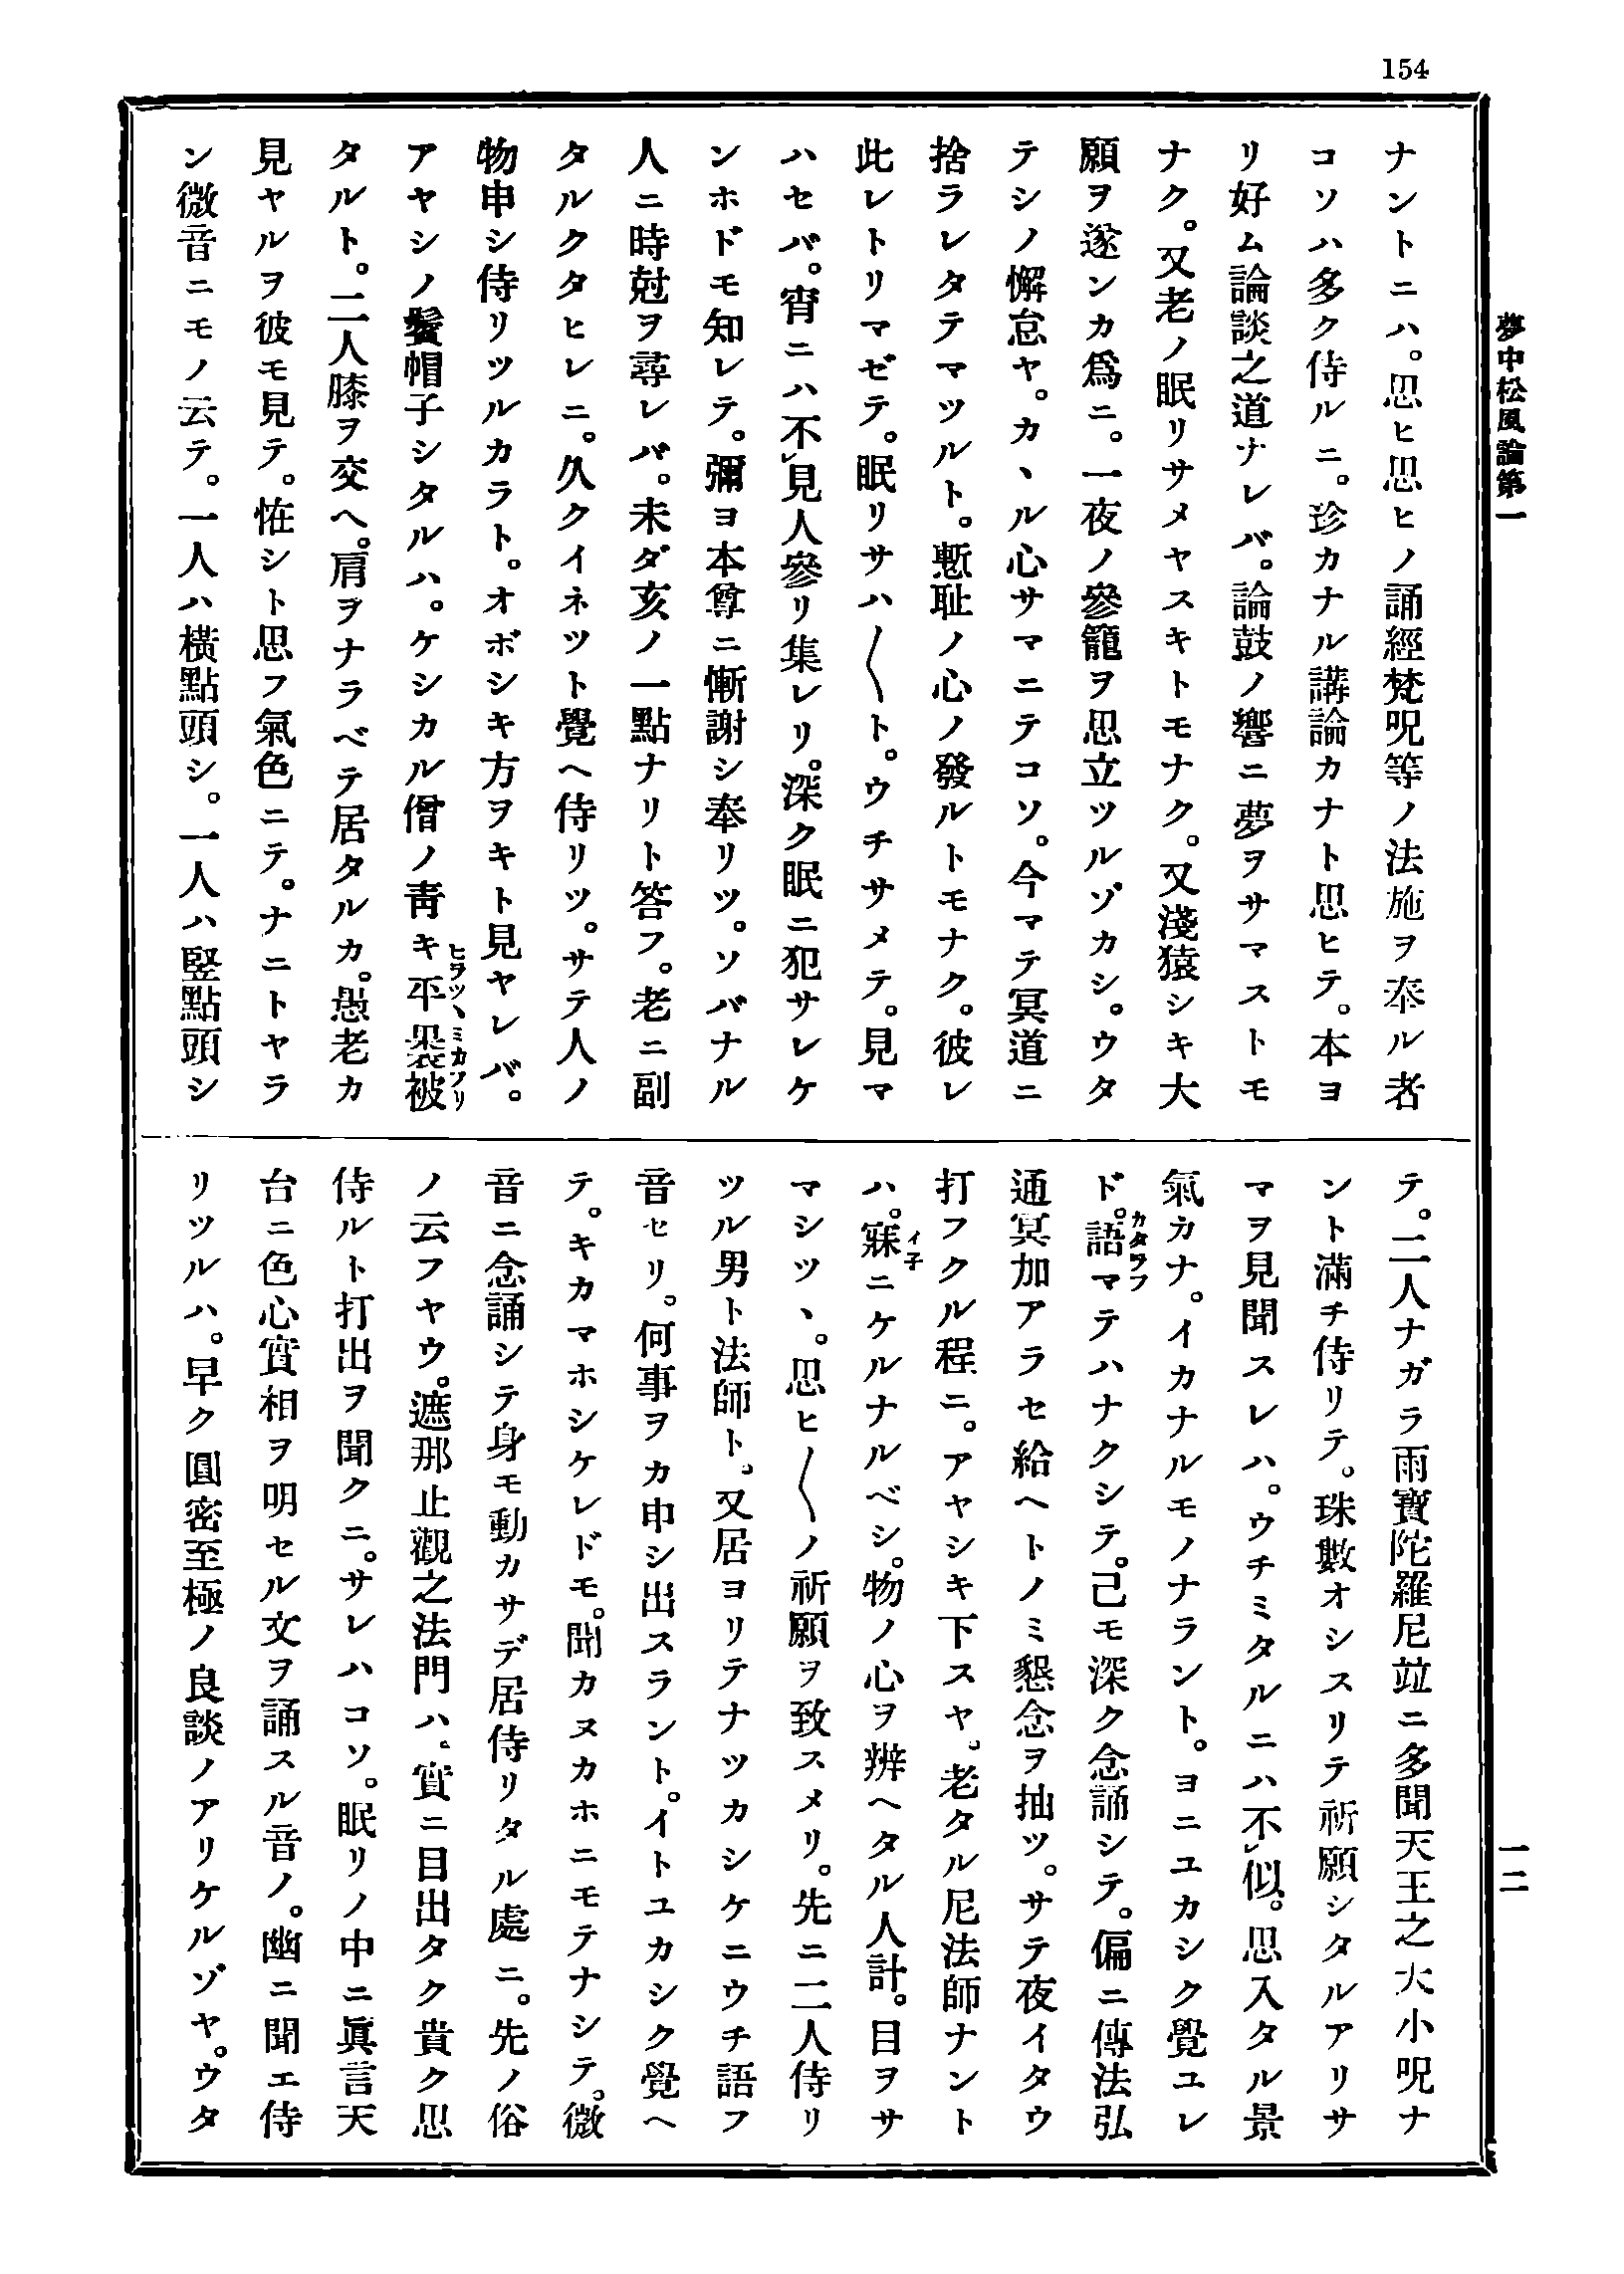 154
夢中松風論第一
一二
ナントニハ。思ヒ思ヒノ誦經梵呪等ノ法施ヲ奉ル者
コソハ多ク侍ルニ。珍カナル講論カナト思ヒテ。本ヨ
リ好ム論談之道ナレバ。論鼓ノ響ニ夢ヲサマストモ
ナク。又老ノ眠リサメヤスキトモナク。又淺猿シキ大
願ヲ遂ンカ爲ニ。一夜ノ參籠ヲ思立ツルゾカシ。ウタ
テシノ懈怠ヤ。カヽル心サマニテコソ。今マテ冥道ニ
捨ラレタテマツルト。慙耻ノ心ノ發ルトモナク。彼レ
此レトリマゼテ。眠リサハ〳〵ト。ウチサメテ。見マ
ハセバ。宵ニハ不㆑見人參リ集レリ。深ク眠ニ犯サレケ
ンホドモ知レテ。彌ヨ本尊ニ慚謝シ奉リツ。ソバナル
人ニ時尅ヲ尋レバ。未ダ亥ノ一點ナリト答フ。老ニ副
タルクタヒレニ。久クイネツト覺ヘ侍リツ。サテ人ノ
物申シ侍リツルカラト。オボシキ方ヲキト見ヤレバ。
アヤシノ鬢帽子シタルハ。ケシカル僧ノ靑キ平裹被
ヒラツヽミカフリ
タルト。二人膝ヲ交ヘ。肩ヲナラベテ居タルカ。愚老カ
見ヤルヲ彼モ見テ。恠シト思フ氣色ニテ。ナニトヤラ
ン微音ニモノ云テ。一人ハ橫點頭シ。一人ハ竪點頭シ
テ。二人ナガラ雨寶陀羅尼竝ニ多聞天王之大小呪ナ
ント滿チ侍リテ。珠數オシスリテ祈願シタルアリサ
マヲ見聞スレハ。ウチミタルニハ不㆑似。思入タル景
氣カナ。イカナルモノナラント。ヨニユカシク覺ユレ
ド。語マテハナクシテ。己モ深ク念誦シテ。偏ニ傳法弘
カタラフ
通冥加アラセ給ヘトノミ懇念ヲ抽ツ。サテ夜イタウ
打フクル程ニ。アヤシキ下スヤ。老タル尼法師ナント
ハ。寐ニケルナルベシ。物ノ心ヲ辨ヘタル人計。目ヲサ
イ子
マシツヽ。思ヒ〳〵ノ祈願ヲ致スメリ。先ニ二人侍リ
ツル男ト法師ト。又居ヨリテナツカシケニウチ語フ
音セリ。何事ヲカ申シ出スラント。イトユカシク覺ヘ
テ。キカマホシケレドモ。聞カヌカホニモテナシテ。微
音ニ念誦シテ身モ動カサデ居侍リタル處ニ。先ノ俗
ノ云フヤウ。遮那止觀之法門ハ。實ニ目出タク貴ク思
侍ルト打出ヲ聞クニ。サレハコソ。眠リノ中ニ眞言天
台ニ色心實相ヲ明セル文ヲ誦スル音ノ。幽ニ聞エ侍
リツルハ。早ク圓密至極ノ良談ノアリケルゾヤ。ウタ